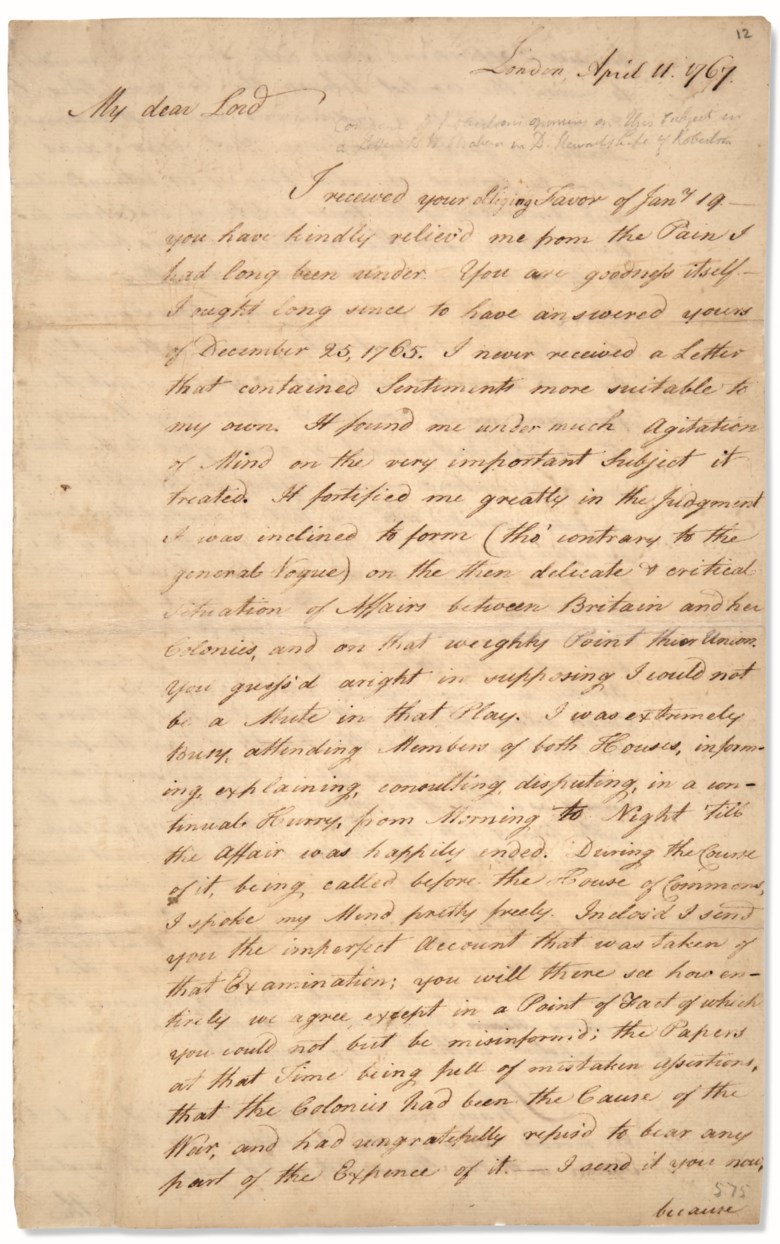 12
London, April 11. 1767.
My dear Lord
on this Subject in
a Letter to in D. Stewart's Life of Robertson
I received your obliging Favor of Jany 19 —
you have kindly reliev'd me from the Pain I
had long been under. You are goodness itself —
I ought long since to have answered yours
of December 25, 1765. I never received a Letter
that contained Sentiments more suitable to
my own. It found me under much Agitation
of Mind on the very important Subject it
treated. It fortified me greatly in the Judgment
I was inclined to form (tho' contrary to the
general Vogue) on the then delicate & critical
Situation of Affairs between Britain and her
Colonies, and on that weighty Point their Union.
You guess'd aright in supposing I would not
be a Mute in that Play. I was extremely
Busy, attending Members of both Houses, inform-
ing, explaining, consulting, disputing, in a con-
tinual Hurry, from Morning to Night 'till
the Affair was happily ended. During the Course
of it, being called before the House of Commons,
I spoke my Mind pretty freely. Inclos'd I send
you the imperfect Account that was taken of
that Examination; you will there see how en-
tirely we agree, except in a Point of Fact of which
you could not but be misinformed; the Papers
at that Time being full of mistaken assertions,
that the Colonies had been the Cause of the
War, and had ungratefully refus'd to bear any
part of the Expence of it. — I send it you now,
575
because